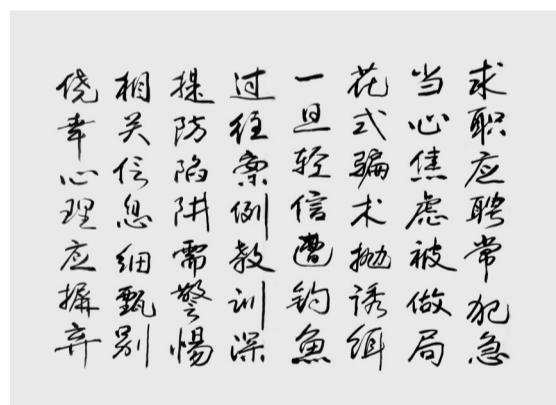 求职应聘常犯急
当心焦虑被做局
花式骗术抛诱饵
一旦轻信遭钓魚
过往案例教训深
提防陷阱需警惕
相关信息细甄别
侥幸心理应摒弃